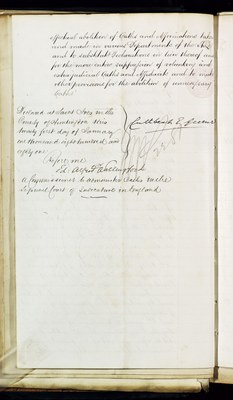 effectual abolition of Oaths and Affirmations taken
and made in various Departments of the State
and to substitute Declarations in lieu thereof and
for the more entire suppression of voluntary and
extrajudicial Oaths and Affidavits and to make
other provisions for the abolition of unnecessary
Oaths"
Declared at Saint Ives in the
County of Huntingdon this
twenty first day of January
one thousand eight hundred and
eighty one
Before me
A Commissioner to administer Oaths in the
Supreme Court of Judicature in England